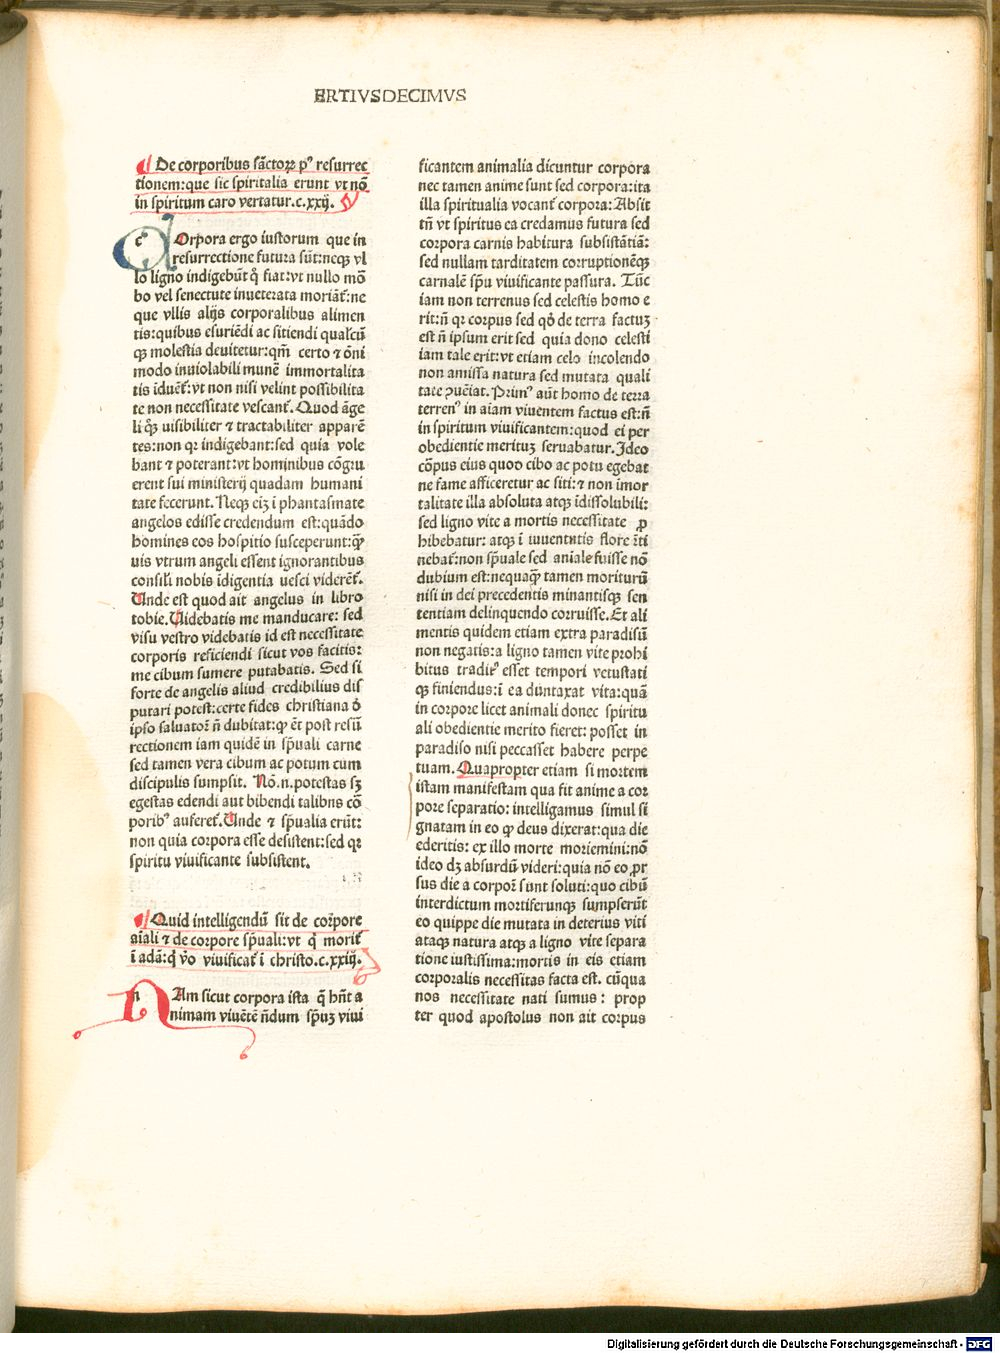 ERTIVSDECIMVS
De corporibus sāctoꝝ pꝰ resurrec
tionem:que sic spiritalia erunt vt nō
in spiritum caro vertatur.c.xxij.
COrpora ergo iustorum que in
resurrectione futura sūt:neqꝫ vl
lo ligno indigebūt q̊ fiat:vt nullo mō
bo vel senectute inueterata moriāt᷑:ne
que vllis alijs corporalibus alimen
tis:quibus esuriēdi ac sitiendi qualcū
qꝫ molestia deuitetur:qm̄ certo ⁊ ōni
modo inuiolabili munē immortalita
tis īduēt᷑:vt non nisi velint possibilita
te non necessitate vescant᷑. Quod āge
li qꝫ uisibiliter ⁊ tractabiliter apparē
tes:non qꝛ indigebant:sed quia vole
bant ⁊ poterant:vt hominibus cōgru
erent sui ministerij quadam humani
tate fecerunt. Neqꝫ eīꝫ ī phantasmate
angelos edisse credendum est:quādo
homines eos hospitio susceperunt:qꝙ̄
uis vtrum angeli essent ignorantibus
consili nobis īdigentia uesci viderēt᷑.
Unde est quod ait angelus in libro
tobie. Uidebatis me manducare: sed
visu vestro videbatis id est necessitate
corporis reficiendi sicut vos facitis:
me cibum sumere putabatis. Sed si
forte de angelis aliud credibilius dis
putari potest:certe fides christiana ď
ipso saluatoꝛē n̄ dubitat:ꝙ ēt post resū
rectionem iam quidē in sp̄uali carne
sed tamen vera cibum ac potum cum
discipulis sumpsit. Nō.n.potestas sꝫ
egestas edendi aut bibendi talibus cō
poribꝰ auferet᷑. Unde ⁊ sp̄ualia erūt:
non quia corpora esse desistent:sed qꝛ
spiritu viuificante subsistent.
Quid intelligendū sit de coꝛpore
aīali ⁊ de corpore sp̄uali:vt q̇ morit᷑
ī adā:q̇ v̊o viuificat᷑ ī christo.c.xxiij.
NAm sicut corpora ista q̄ hn̄t a
nimam viuētē n̄dum sp̄uꝫ viui
ficantem animalia dicuntur corpora
nec tamen anime sunt sed corpora:ita
illa spiritualia vocant᷑ corpora:Absit
tn̄ vt spiritus ea credamus futura sed
corpora carnis habitura subsistātiā:
sed nullam tarditatem corruptionēqꝫ
carnalē sp̄u viuificante passura. Tūc
iam non terrenus sed celestis homo e
rit:n̄ qꝛ corpus sed qđ de terra factuꝫ
est n̄ ipsum erit sed quia dono celesti
iam tale erit:vt etiam celo incolendo
non amissa natura sed mutata quali
tate ꝓueniat. Primꝰ aūt homo de terra
terrenꝰ in aīam viuentem factus est:n̄
in spiritum viuificantem:quod ei per
obedientie merituꝫ seruabatur. Ideo
cōpus eius quod cibo ac potu egebat
ne fame afficeretur ac siti:⁊ non imor
talitate illa absoluta atqꝫ īdissolubili:
sed ligno vite a mortis necessitate ꝓ
hibebatur: atqꝫ ī iuuentutis flore ꝛēti
nebat᷑:non sp̄uale sed aniale fuisse nō
dubium est:nequaqꝙ̄ tamen moriturū
nisi in dei precedentis minantisqꝫ sen
tentiam delinquendo corruisse. Et ali
mentis quidem etiam extra paradisū
non negatis:a ligno tamen vite prohi
bitus traditꝰ esset tempori vetustati
qꝫ finiendus:ī ea duntaxat vita:quā
in corpore licet animali donec spiritu
ali obedientie merito fieret: posset in
paradiso nisi peccasset habere perpe
tuam. Quapropter etiam si mortem
istam manifestam qua fit anime a cor
pore separatio: intelligamus simul si
gnatam in eo ꝙ deus dixerat:qua die
ederitis: ex illo morte moriemini:nō
ideo dꝫ absurdū videri:quia nō eo pꝛor
sus die a corpoꝛe sunt soluti:quo cibū
interdictum mortiferunqꝫ sumpserūt
eo quippe die mutata in deterius viti
ataqꝫ natura atqꝫ a ligno vite separa
tione iustissima:mortis in eis etiam
corporalis necessitas facta est. cūqua
nos necessitate nati sumus: prop
ter quod apostolus non ait corpus
Digitalisierung gefördert durch die Deutsche Forschungsgemeinschaft - DFG